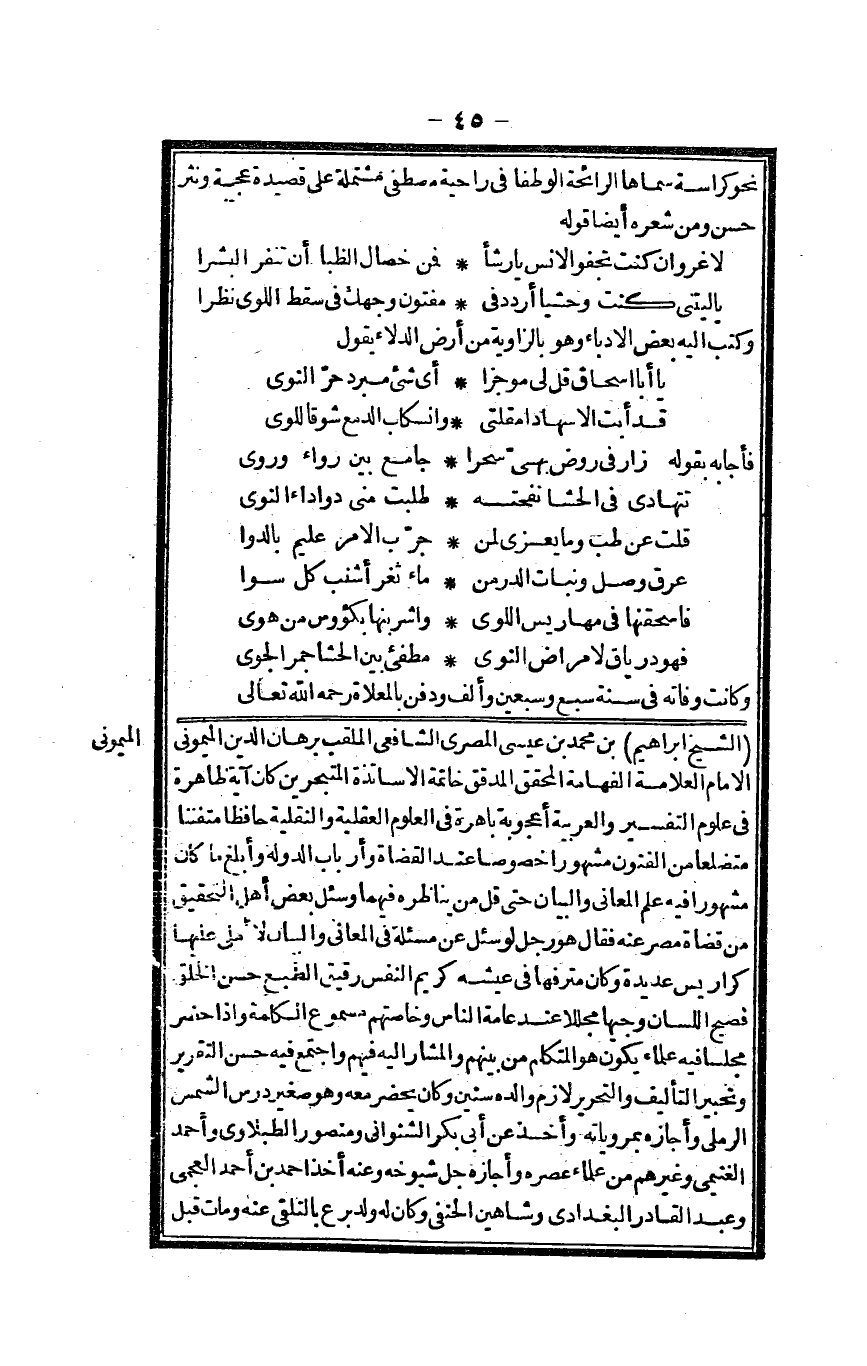 - ٤٥ -
نحو كراسة سماها الرائحة الوطفا فى راحية مصطفى مشتملة على قصيدة عجيبة ونثر
حسن ومن شعره أيضا قوله
لا غروان كنت تجفو الانس يا رشأ * فمن خصال الظبا أن تنفر البشرا
ياليتنى كنت وحشيا أرددفى * مفتون وجهك فى سقط اللوى نظرا
وكتب اليه بعض الادباء وهو بالزاوية من أرض الدلاء يقول
يا أبا اسحاق قل لى موجزا * أى شئ مبرد حرّ النوى
قد أبت الاسهادا مقلتى * وانسكاب الدمع شوقا للوى
فأجابه بقوله زار فى روض بهىّ سحرا * جامع بين رواء وروى
تتهادى فى الحشا نفحته * طلبت منى دواداء النوى
قلت عن طب وما يعزى لمن * جرّب الامر عليم بالدوا
عرق وصل ونبات الدر من * ماء ثغر أشنب كل سوا
فاسحقنها فى مهاريس اللوى * واشربنها بكؤوس من هوى
فهو درياق لامراض النوى * مطفئ بين الحشا جمر الجوى
وكانت وفاته فى سنة سبع وسبعين وألف ودفن بالمعلاة رحمه الله تعالى
الميمونى
(الشيخ ابراهيم) بن محمد بن عيسى المصرى الشافعى الملقب برهان الدين الميمونى
الامام العلامة الفهامة المحقق المدقق خاتمة الاساتذة المتبحرين كان آية ظاهرة
فى علوم التفسير والعربية أعجوبة باهرة فى العلوم العقلية والنقلية حافظا متفننا
متضلعا من الفنون مشهورا خصوصا عند القضاة وأرباب الدولة وأبلغ ما كان
مشهورا فيه علم المعانى والبيان حتى قل من يناظره فيهما وسئل بعض أهل التحقيق
من قضاة مصر عنه فقال هو رجل لو سئل عن مسئلة فى المعانى والبيان لأملى عليها
كراريس عديدة وكان مترفها فى عيشه كريم النفس رقيق الطبع حسن الخلق
فصيح اللسان وجيها مجللا عند عامة الناس وخاصتهم مسموع الكلمة واذا حضر
مجلسا فيه علماء يكون هو المتكلم من بينهم والمشار اليه فيهم واجتمع فيه حسن التقرير
وتحبير التأليف والتحرير لازم والده سنين وكان يحضر معه وهو صغير درس الشمس
الرملى وأجازه بمروياته وأخذ عن أبى بكر الشنوانى ومنصور الطبلاوى وأحمد
الغنيمى وغيرهم من علماء عصره وأجازه جل شيوخه وعنه أخذ احمد بن أحمد العجمى
وعبد القادر البغدادى وشاهين الحنفى وكان له ولد برع بالتلقى عنه ومات قبل